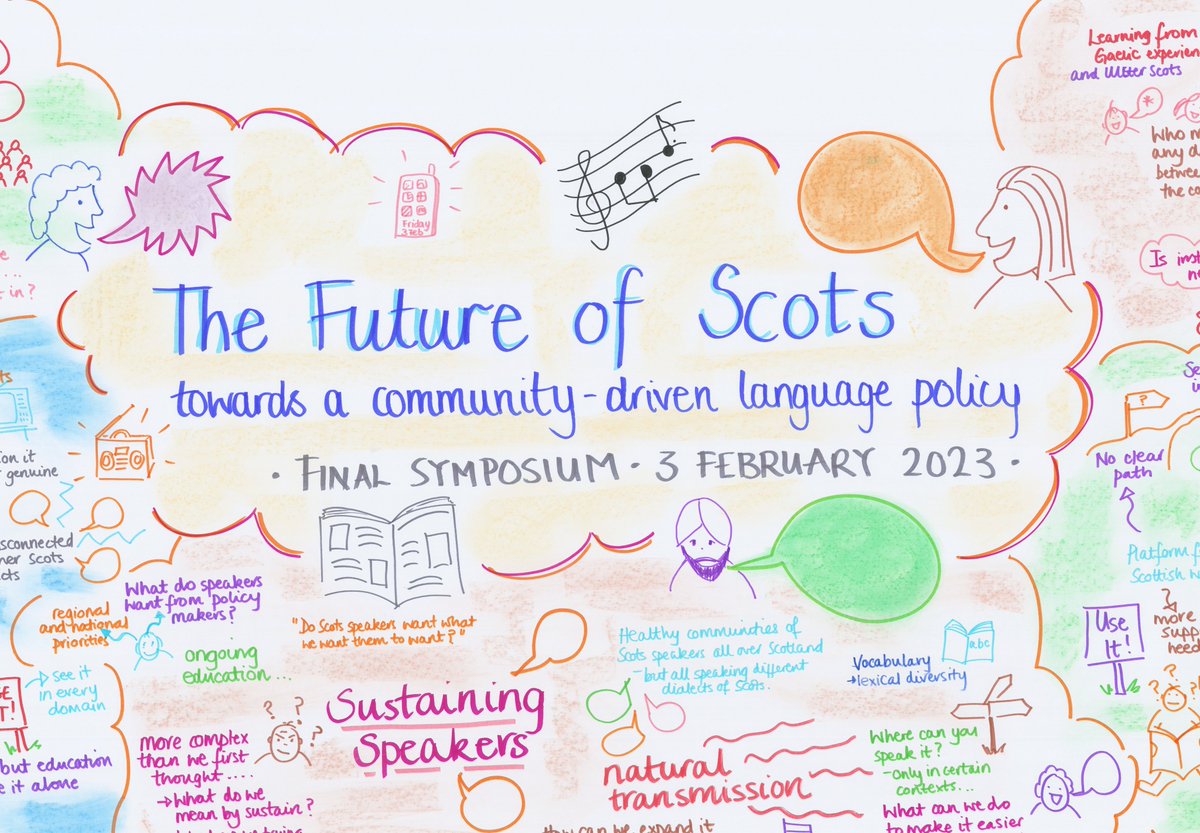 The Future of Scots
towards a community-driven language policy
· FINAL SYMPOSIUM · 3 FEBRUARY 2023 ·
Friday
3 Feb
Learning from
Gaelic experien
and Ulster Scots
Who m
any d
betwee
the co
Is inst
ne
in?
on it
genuine
sconnected
her Scots
cts
regional
and national
priorities
What do speakers
want from policy
makers?
ongoing
education...
see it
in every
domain
but education
e it alone
"Do Scots speakers want what
we want them to want?"
Sustaining
Speakers
more complex
than we first
thought....
→ What do we
mean by sustain?
Healthy communities of
Scots speakers all over Scotland
- but all speaking different
dialects of Scots.
abc
Vocabulary
→ lexical diversity
natural
transmission
How can we expand it
Where can you
speak it?
- only in certain
contexts...
What can we do
to make it easier
?
No clear
path
Platform f
Scottish w
Use
It!
more
supp
need